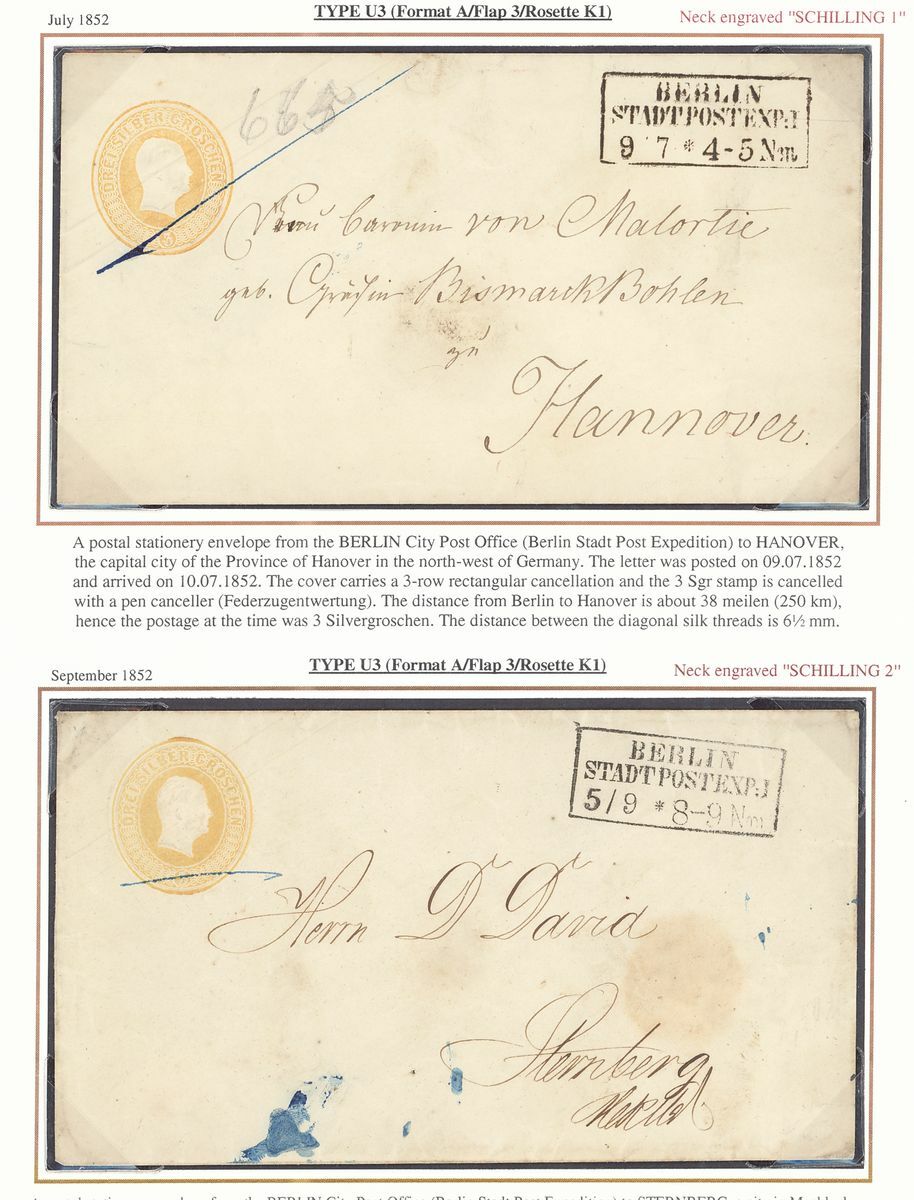 July 1852
TYPE U3 (Format A/Flap 3/Rosette K1)
Neck engraved "SCHILLING 1"
DREI SILBER GROSCHEN
3
665
BERLIN
STADTPOSTEXP:I
9 7 * 4-5 Nm
Frau Baronin von Malortie
geb. Gräfin Bismarck Bohlen
zu
Hannover.
A postal stationery envelope from the BERLIN City Post Office (Berlin Stadt Post Expedition) to HANOVER,
the capital city of the Province of Hanover in the north-west of Germany. The letter was posted on 09.07.1852
and arrived on 10.07.1852. The cover carries a 3-row rectangular cancellation and the 3 Sgr stamp is cancelled
with a pen canceller (Federzugentwertung). The distance from Berlin to Hanover is about 38 meilen (250 km),
hence the postage at the time was 3 Silvergroschen. The distance between the diagonal silk threads is 6½ mm.
September 1852
TYPE U3 (Format A/Flap 3/Rosette K1)
Neck engraved "SCHILLING 2"
DREI SILBER GROSCHEN
BERLIN
STADTPOSTEXP:I
5/9 * 8-9 Nm
Herrn D David
Sternberg